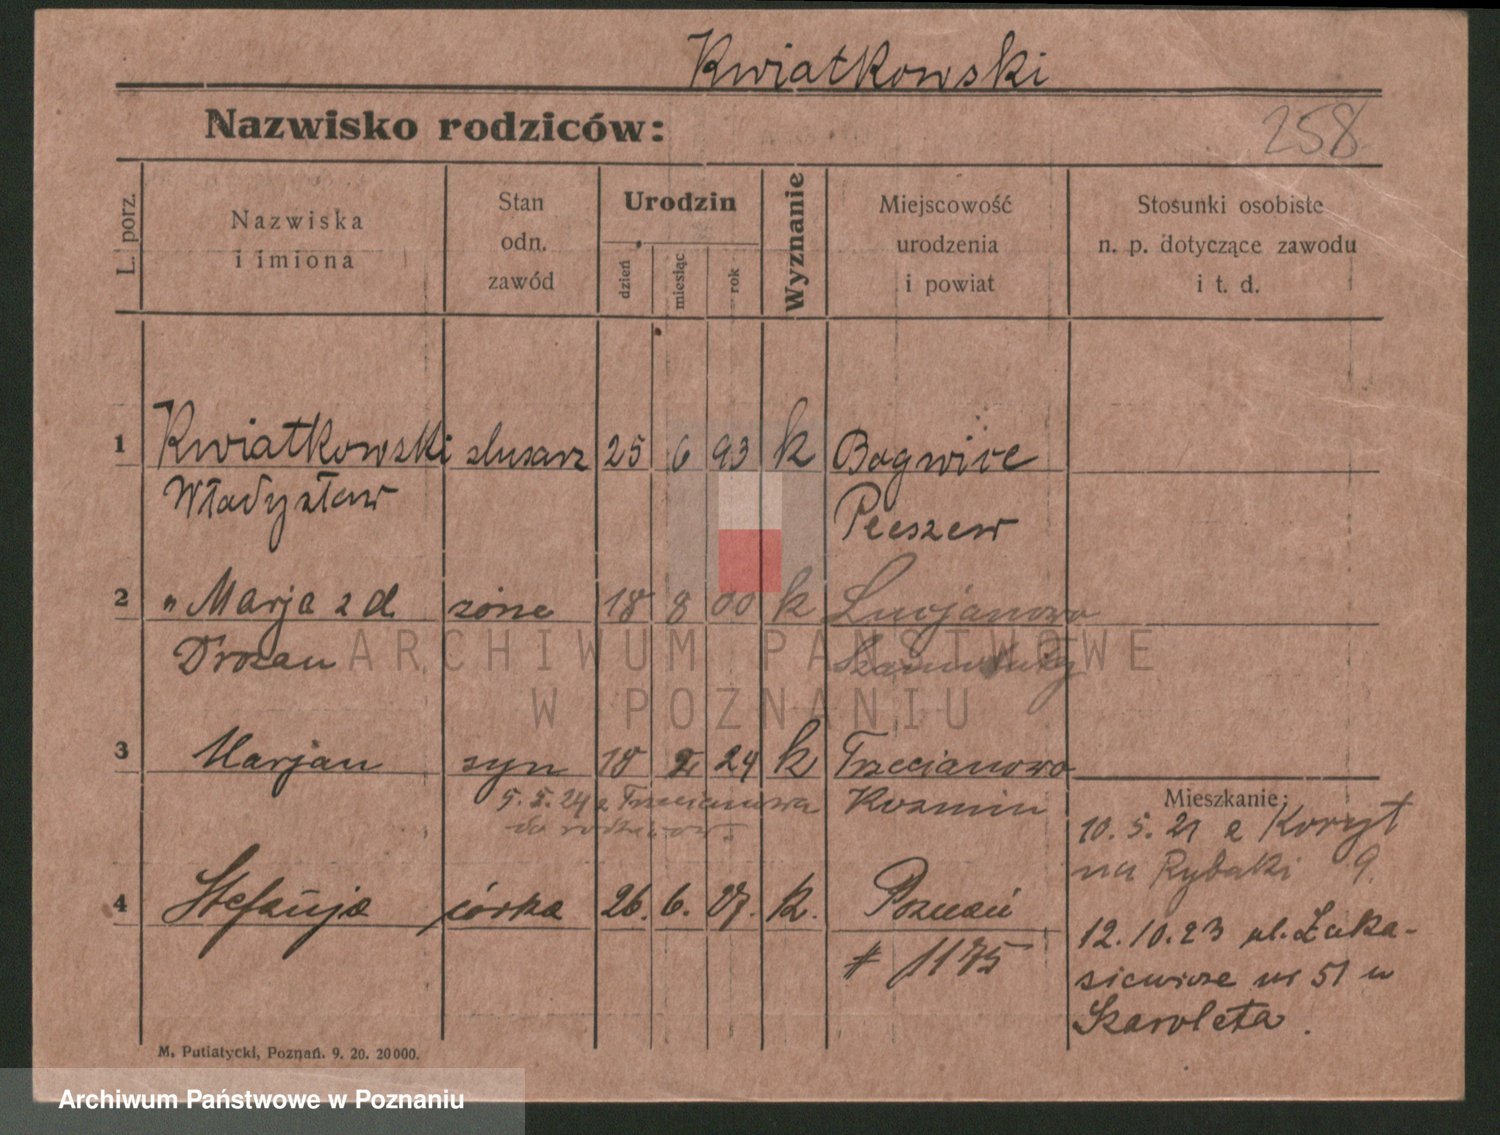 Kwiatkowski
Nazwisko rodziców:
258
L. porz.
Nazwiska
i imiona
Stan
odn.
zawód
Urodzin
dzień
miesiąc
rok
Wyznanie
Miejscowość
urodzenia
i powiat
Stosunki osobiste
n. p. dotyczące zawodu
i t. d.
1 Kwiatkowski slusarz 25 6 93 k Bogwice
Władysław Pleszew
2 " Marja z d. żona 18 8 00 k Lucjanowo
Drozan
3 Marjan syn 18 2 24 k Trzecianowo
5. 5. 24 z Trzecianowa Kozmin
do rodziców.
Mieszkanie:
10. 5. 21 z Koryt
na Rybaki 9.
4 Stefanja córka 26. 6. 27. k. Poznań
# 1175
12.10.23 ul. Łuka-
siewicza nr 51 u
Szaroleta.
M. Putiatycki, Poznań. 9. 20. 20000.
ARCHIWUM PAŃSTWOWE
W POZNANIU
Archiwum Państwowe w Poznaniu